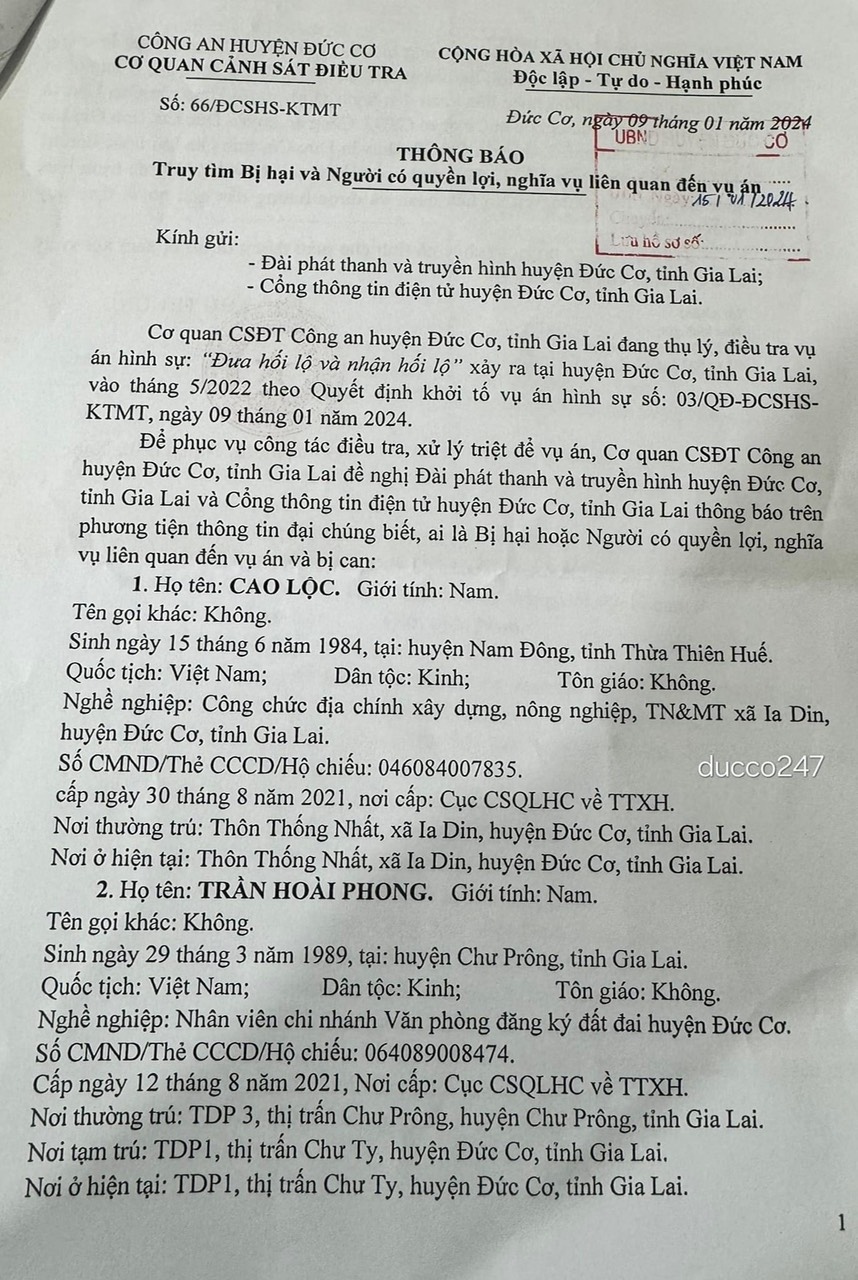 CÔNG AN HUYỆN ĐỨC CƠ
CƠ QUAN CẢNH SÁT ĐIỀU TRA
CỘNG HÒA XÃ HỘI CHỦ NGHĨA VIỆT NAM
Độc lập - Tự do - Hạnh phúc
Số: 66/ĐCSHS-KTMT
Đức Cơ, ngày 09 tháng 01 năm 2024
UBND
CƠ
THÔNG BÁO
Truy tìm Bị hại và Người có quyền lợi, nghĩa vụ liên quan đến vụ án
15/01/2024
Lưu hồ sơ số:
Kính gửi:
- Đài phát thanh và truyền hình huyện Đức Cơ, tỉnh Gia Lai;
- Cổng thông tin điện tử huyện Đức Cơ, tỉnh Gia Lai.
Cơ quan CSĐT Công an huyện Đức Cơ, tỉnh Gia Lai đang thụ lý, điều tra vụ
án hình sự: “Đưa hối lộ và nhận hối lộ” xảy ra tại huyện Đức Cơ, tỉnh Gia Lai,
vào tháng 5/2022 theo Quyết định khởi tố vụ án hình sự số: 03/QĐ-ĐCSHS-
KTMT, ngày 09 tháng 01 năm 2024.
Để phục vụ công tác điều tra, xử lý triệt để vụ án, Cơ quan CSĐT Công an
huyện Đức Cơ, tỉnh Gia Lai đề nghị Đài phát thanh và truyền hình huyện Đức Cơ,
tỉnh Gia Lai và Cổng thông tin điện tử huyện Đức Cơ, tỉnh Gia Lai thông báo trên
phương tiện thông tin đại chúng biết, ai là Bị hại hoặc Người có quyền lợi, nghĩa
vụ liên quan đến vụ án và bị can:
1. Họ tên: CAO LỘC. Giới tính: Nam.
Tên gọi khác: Không.
Sinh ngày 15 tháng 6 năm 1984, tại: huyện Nam Đông, tỉnh Thừa Thiên Huế.
Quốc tịch: Việt Nam; Dân tộc: Kinh; Tôn giáo: Không.
Nghề nghiệp: Công chức địa chính xây dựng, nông nghiệp, TN&MT xã Ia Din,
huyện Đức Cơ, tỉnh Gia Lai.
Số CMND/Thẻ CCCD/Hộ chiếu: 046084007835.
ducco247
cấp ngày 30 tháng 8 năm 2021, nơi cấp: Cục CSQLHC về TTXH.
Nơi thường trú: Thôn Thống Nhất, xã Ia Din, huyện Đức Cơ, tỉnh Gia Lai.
Nơi ở hiện tại: Thôn Thống Nhất, xã Ia Din, huyện Đức Cơ, tỉnh Gia Lai.
2. Họ tên: TRẦN HOÀI PHONG. Giới tính: Nam.
Tên gọi khác: Không.
Sinh ngày 29 tháng 3 năm 1989, tại: huyện Chư Prông, tỉnh Gia Lai.
Quốc tịch: Việt Nam; Dân tộc: Kinh; Tôn giáo: Không.
Nghề nghiệp: Nhân viên chi nhánh Văn phòng đăng ký đất đai huyện Đức Cơ.
Số CMND/Thẻ CCCD/Hộ chiếu: 064089008474.
Cấp ngày 12 tháng 8 năm 2021, Nơi cấp: Cục CSQLHC về TTXH.
Nơi thường trú: TDP 3, thị trấn Chư Prông, huyện Chư Prông, tỉnh Gia Lai.
Nơi tạm trú: TDP1, thị trấn Chư Ty, huyện Đức Cơ, tỉnh Gia Lai.
Nơi ở hiện tại: TDP1, thị trấn Chư Ty, huyện Đức Cơ, tỉnh Gia Lai.
1